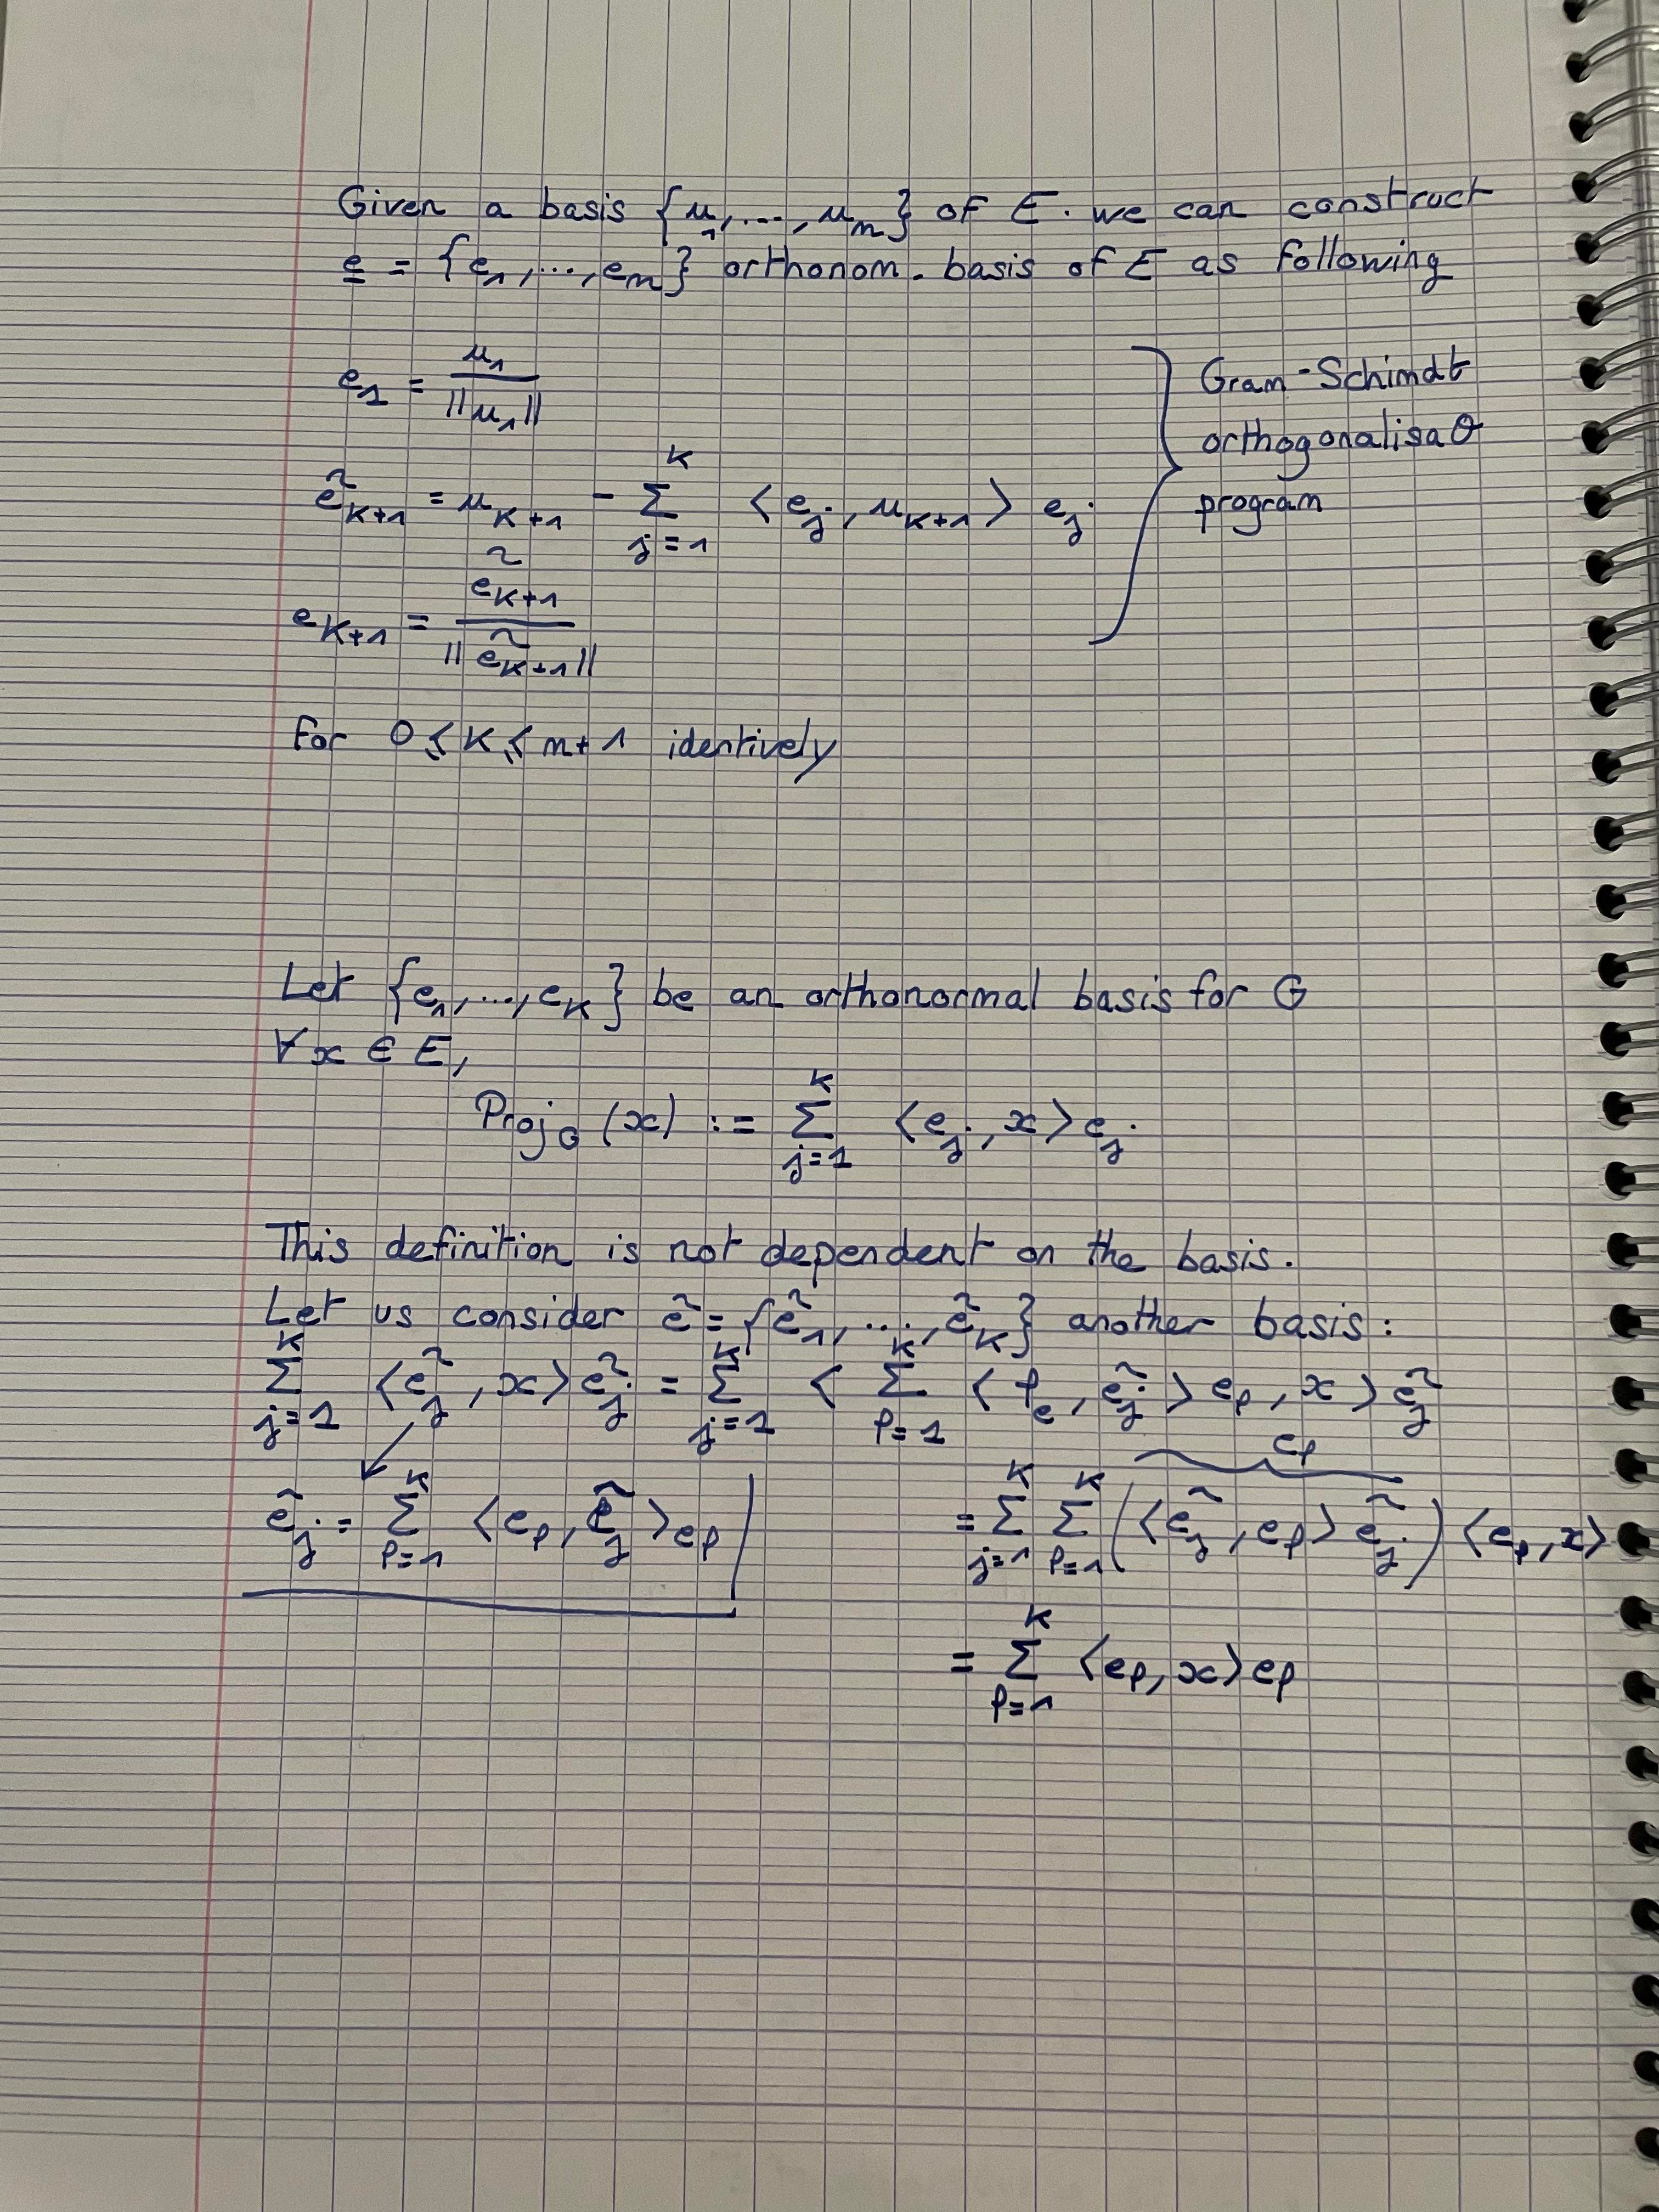 Given a basis {u₁, ..., uₙ} of E. we can construct
e = {e₁, ..., eₙ} orthonom. basis of E as following
e₁ = u₁ / ||u₁||
ẽ_{K+1} = u_{K+1} - Σ_{j=1}^{K} <e_j, u_{K+1}> e_j
e_{K+1} = ẽ_{K+1} / ||ẽ_{K+1}||
Gram-Schimdt
orthogonalisaθ
program
For 0 ≤ K ≤ n+1 identively
Let {e₁, ..., e_K} be an orthonormal basis for G
∀ x ∈ E,
Proj_G (x) := Σ_{j=1}^{K} <e_j, x> e_j
This definition is not dependent on the basis.
Let us consider ẽ = {ẽ₁, ..., ẽ_K} another basis:
Σ_{j=1}^{K} <ẽ_j, x> ẽ_j = Σ_{j=1}^{K} < Σ_{p=1}^{K} <p_e, ẽ_j> e_p, x> ẽ_j
ẽ_j = Σ_{p=1}^{K} <e_p, ẽ_j> e_p
e_p
= Σ_{j=1}^{K} Σ_{p=1}^{K} (<ẽ_j, e_p> ẽ_j) <e_p, x>
= Σ_{p=1}^{K} <e_p, x> e_p